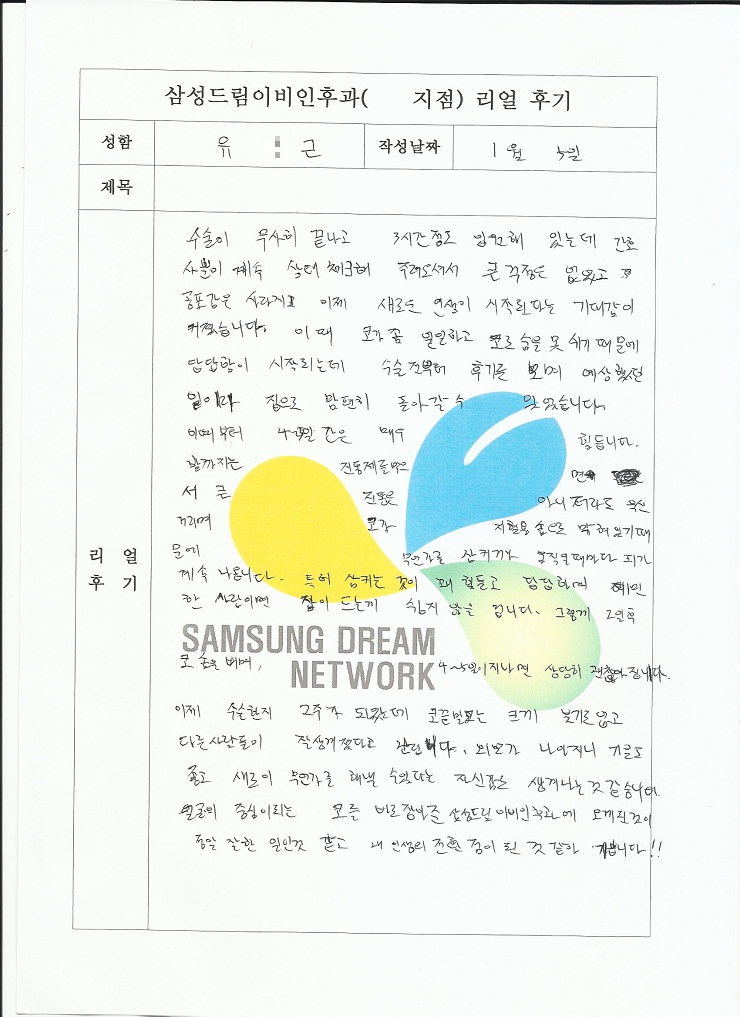 삼성드림이비인후과( 지점) 리얼 후기
성함 유 근 작성날짜 1월 5일
제목
리 얼
후 기
수술이 무사히 끝나고 3시간정도 입원해 있는데 간호
사분이 계속 상태 체크해 주러오셔서 큰 걱정은 없었고
공포감은 사라지고 이제 새로운 인생이 시작된다는 기대감이
커졌습니다. 이 때 코가 좀 얼얼하고 코로 숨을 못 쉬기 때문에
답답함이 시작되는데 수술전부터 후기를 보며 예상했던
일이라 집으로 맘편히 돌아갈 수 있었습니다.
이때부터 4일 간은 매우 힘듭니다.
밤까지는 진통제를 먹으면
서 큰 진통은 아니더라도 욱신
거리며 코가 지혈용 솜으로 막혀있기때
문에 무언가를 삼키거나 움직일때마다 피가
계속 나옵니다. 특히 삼키는 것이 꽤 힘들고 답답하며 예민
한 사람이면 잠이 드는게 쉽지 않을 겁니다. 그렇게 2일후
코 솜을 빼며, 4~5일이지나면 상당히 괜찮아집니다.
이제 수술한지 2주가 되었는데 코끝말고는 크게 붓기도 없고
다른사람들이 잘생겨졌다고 합니다. 외모가 나아지니 기분도
좋고 새로이 무언가를 해낼 수있다는 자신감도 생겨나는것 같습니다.
얼굴의 중심이라는 코를 바로잡아준 삼성드림이비인후과에 오게된것이
정말 잘한 일인것 같고 내 인생의 전환 점이 된 것 같아 기쁩니다!!
SAMSUNG DREAM
NETWORK